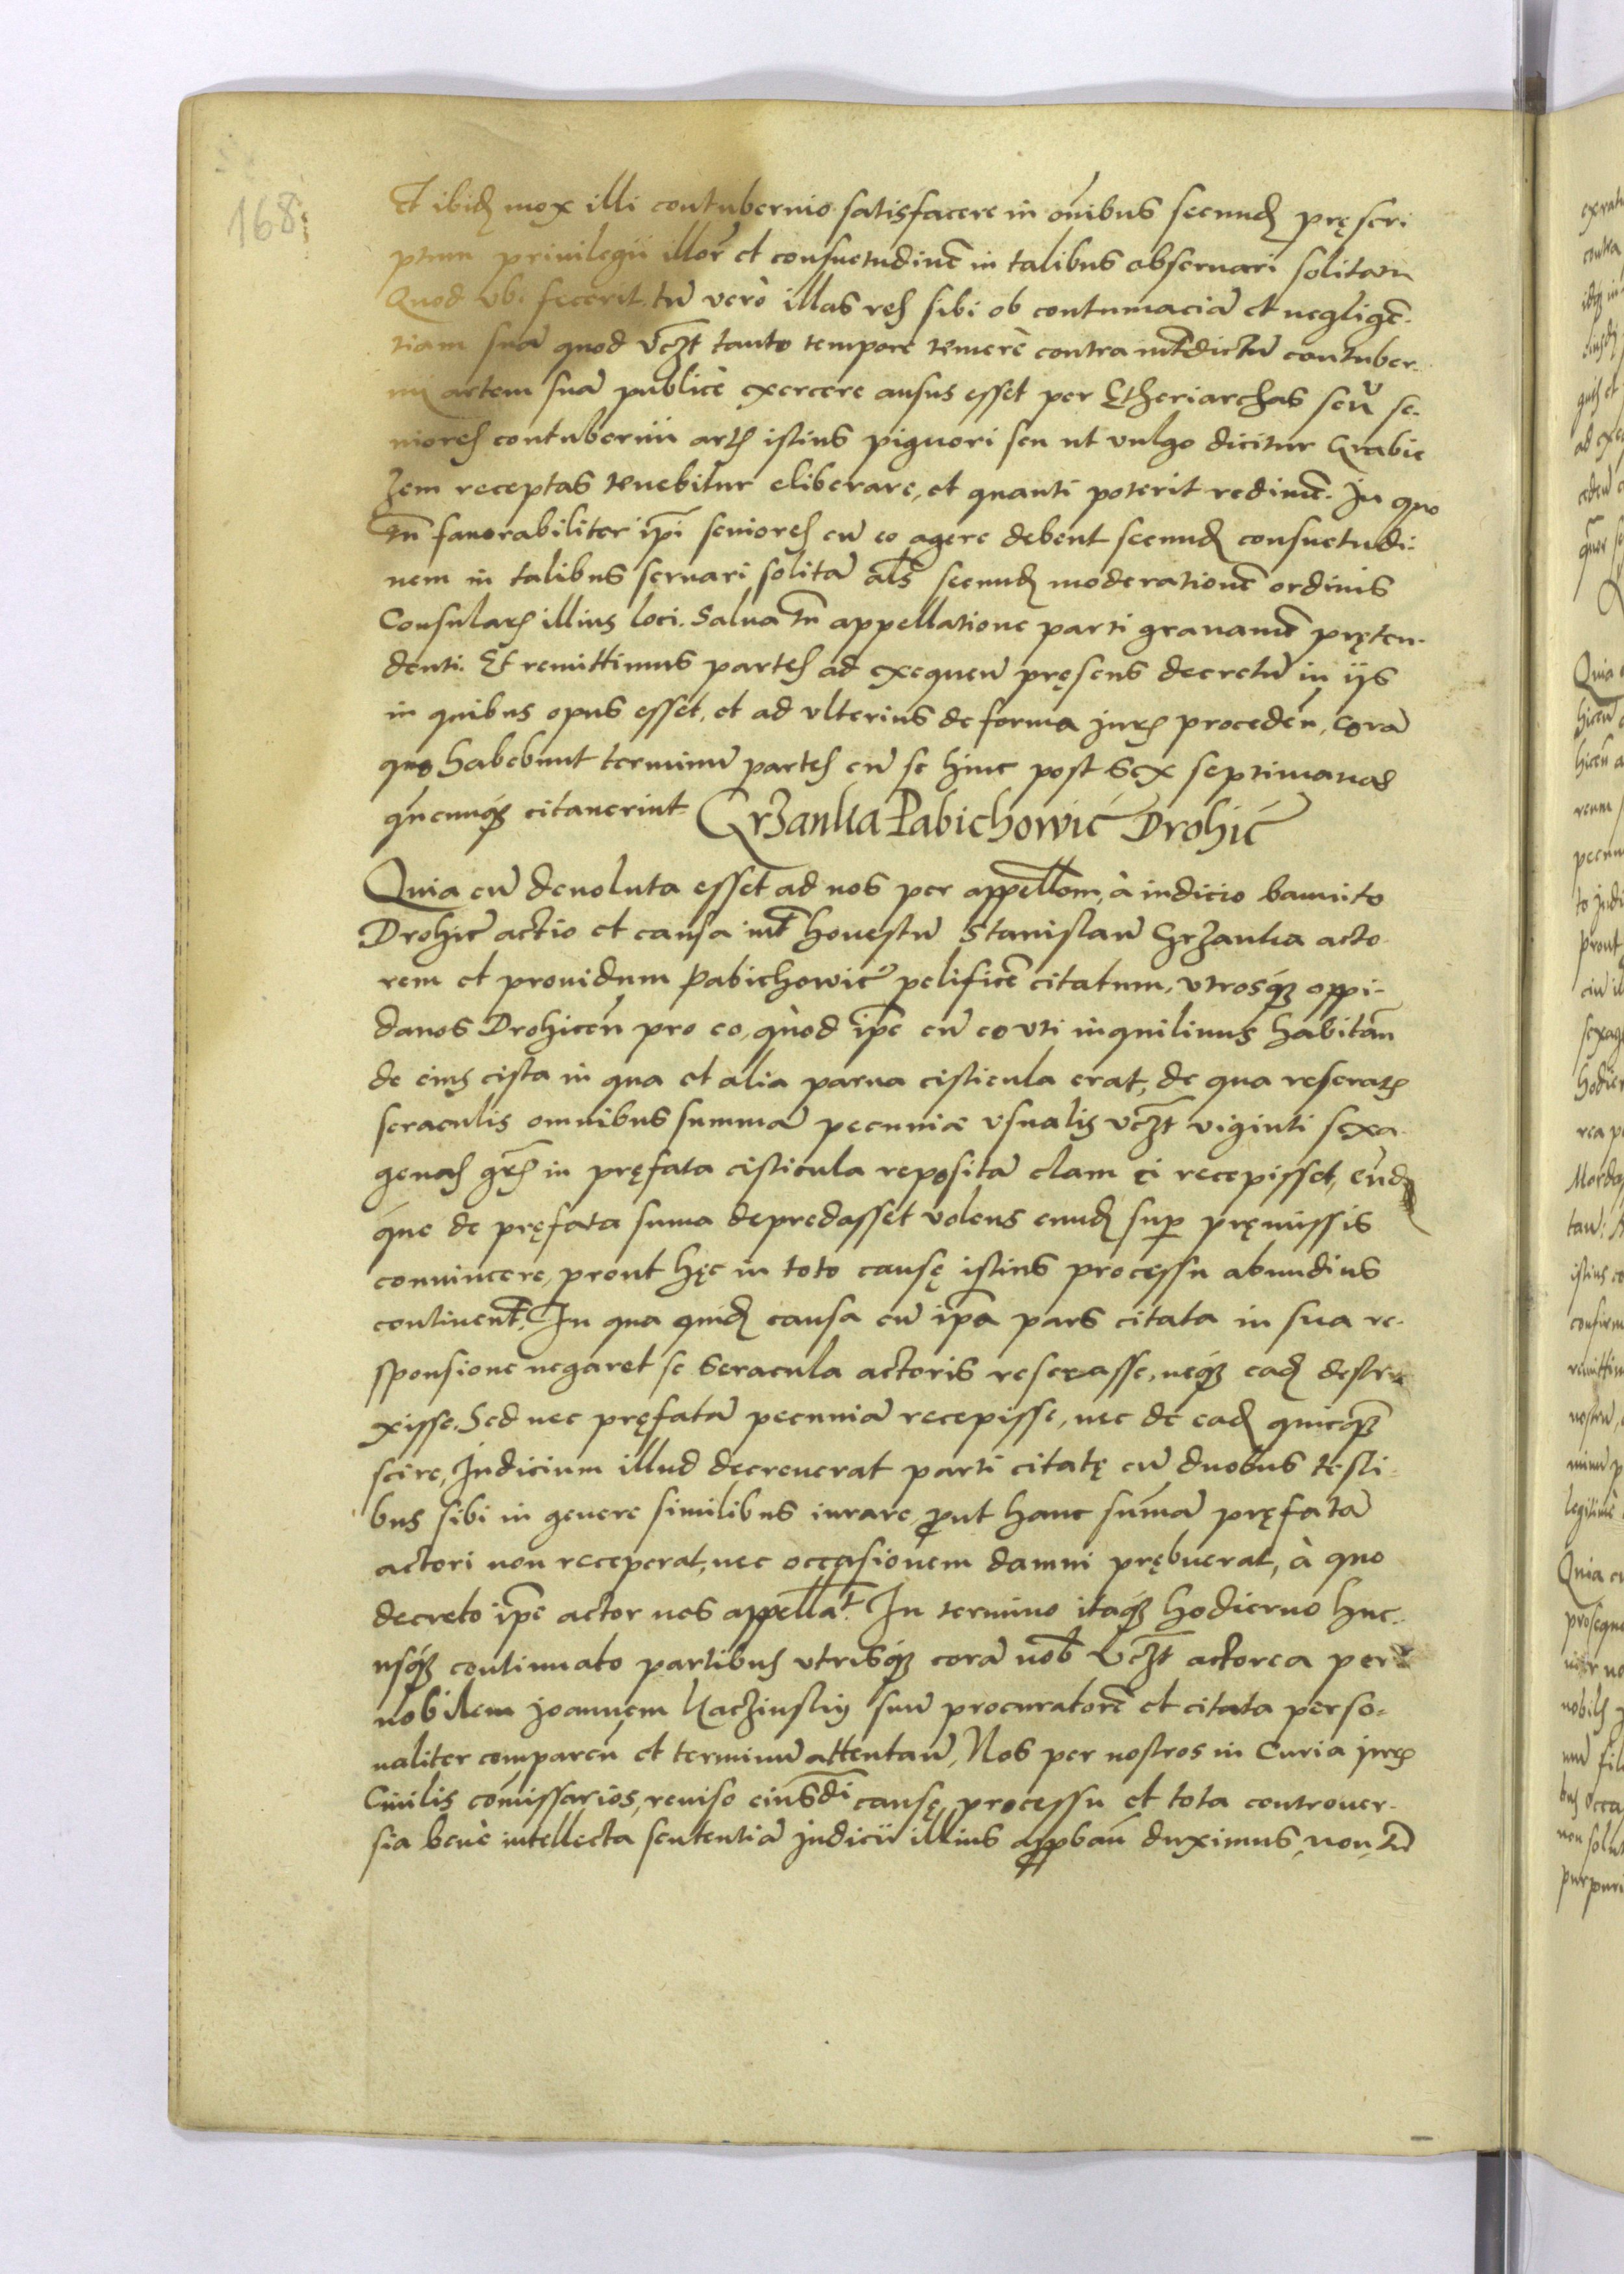 168
Et ibidẽ mox illi contubernio satisfacere in oĩbus secundũ pręscri
ptum priuilegii illorũ et consuetudinẽ in talibus obseruari solitam
Quod vbi fecerit, tũ verò illas res sibi ob contumaciã et negligẽ-
tiam suã quod vczt tanto tempore temerè contra intdictũ contuber-
nij artem suã publicè exercere ausus esset per Etheriarchas seũ se-
niores contubernii artis istius pignori seu ut vulgo dicitur Grabie
zem receptas tenebitur eliberare, et quanti poterit redimẽ. In quo
tñ fauorabiliter ipi seniores cũ eo agere debent secundũ consuetudi-
nem in talibus seruari solitã als secundũ moderationẽ ordinis
Consularis illius loci. Salua tñ appellatione parti grauamẽ pręten-
denti. Et remittimus partes ad exequeñ pręsens decretũ in ijs
in quibus opus esset, et ad vlterius de forma juris procedeñ, corã
quo habebunt terminũ partes cũ se hinc post sex septimanas
quẽcunq3 citauerint. Grzanka Pabichowic Drohic
Quia cũ deuoluta esset ad nos per appellom, à iudicio bannito
Drohic actio et causa int honestũ Stanislaũ Grzanka acto
rem et prouidum Pabichowic pelificẽ citatum, vtrosq3 oppi-
danos Drohiceñ pro eo, quòd ipe cũ eo vti inquilinus habitañ
de eius cista in qua et alia parua cisticula erat, de qua reseratis
seraculis omnibus summã pecuniæ vsualis vczt viginti sexa-
genas gris in pręfata cisticula repositã clam ei recepisset, eũd
que de pręfata suma depredasset volens eundẽ sup pręmissis
conuincere, prout hęc in toto causę istius processu abundius
continent. In qua quidẽ causa cũ ipa pars citata in sua re-
sponsione negaret se seracula actoris reserasse, neq3 eadẽ destra
xisse. Sed nec pręfatã pecuniã recepisse, nec de eadẽ quicq3
scire, Judicium illud decreuerat parti citatę cũ duobus testi-
bus sibi in genere similibus iurare, prout hanc sumã pręfatã
actori non receperat, nec occasionem damni prębuerat, à quo
decreto ipe actor nos appellat. In termino itaq3 hodierno huc-
usq3 continuato partibus vtrisq3 corã nob vczt actorea per
nobilem joannem Kaczinskij suũ procuratorẽ et citata perso-
naliter compareñ et terminũ attentañ, Nos per nostros in Curia juris
Ciuilis comissarios, reuiso eiusdi causę processu et tota controuer-
sia benè intellecta sententiã judicii illius appbañ duximus, non tñ